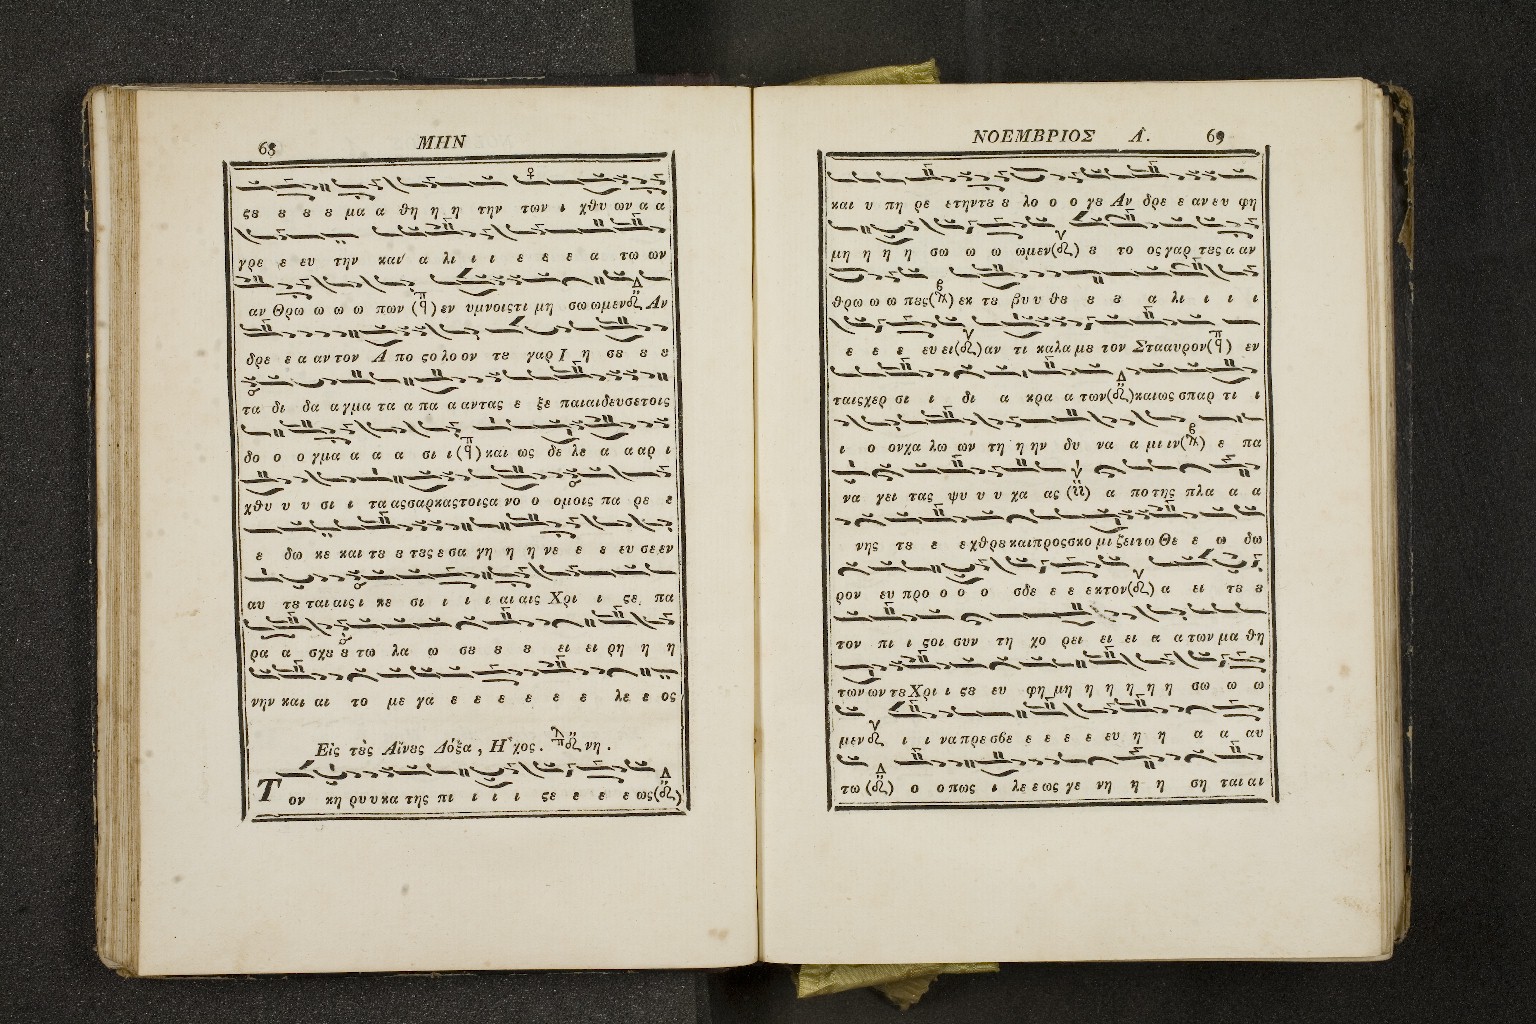 68 ΜΗΝ
ςȣ ȣ ȣ ȣ μα α θη η η την των ι χθυ ων α α
γρε ε ευ την και α λι ι ι ε ε ε α τω ων
αν Θρω ω ω ω πων (q) εν υμνοις τι μη σω ωμεν Αν
δρε ε α αν τον Α πο ςο λο ον τȣ γαρ Ι η σȣ ȣ ȣ
τα δι δα α γμα τα α πα α αντας ε ξε παιαιδευσε τοις
δο ο ο γμα α α α σι ι (q) και ως δε λε α α αρ ι
χθυ υ υ σι ι τα ας σαρκας τοις α νο ο ομοις πα ρε ε
ε δω κε και τȣ ȣ τȣς ε σα γη η η νε ε ε ευ σε εν
αυ τȣ ταιαις ι κε σι ι ι ι αιαις Χρι ι ςε πα
ρα α σχȣ ȣ τω λα ω σȣ ȣ ȣ ει ει ρη η η
νην και αι το με γα ε ε ε ε ε ε λε ε ος
Εἰς τȣ̀ς Αἴνȣς Δόξα, Ἦχος. νη.
Τον κη ρυ υ κα της πι ι ι ι ςε ε ε ε ως
ΝΟΕΜΒΡΙΟΣ Λ. 69
και υ πη ρε ετην τȣ ȣ λο ο ο γȣ Αν δρε ε αν ευ φη
μη η η η σω ω ω ωμεν ȣ το ος γαρ τȣς α αν
θρω ω ω πȣς εκ τȣ βυ υ θȣ ȣ ȣ α λι ι ι ι
ε ε ε ευ ει αν τι καλα μȣ τον Σταα υρον (q) εν
ταις χερ σι ι δι α κρα α των και ως σπαρ τι ι
ι ο ον χα λω ων τη η ην δυ να α μι ιν ε πα
να γει τας ψυ υ υ χα ας α πο της πλα α α
νης τȣ ε εχθρȣ και προσ σκο μι ζει τω Θε ε ω δω
ρον ευ προ ο ο ο σδε ε ε εκτον α ει τȣ ȣ
τον πι ι ςοι συν τη χο ρει ει ει α α των μα θη
των ων τȣ Χρι ι ςȣ ευ φη μη η η η η η σω ω ω
μεν ι ι να πρε σβε ε ε ε ε ευ η η α α αυ
τω ο ο πως ι λε ε ως γε νη η η ση ται αι